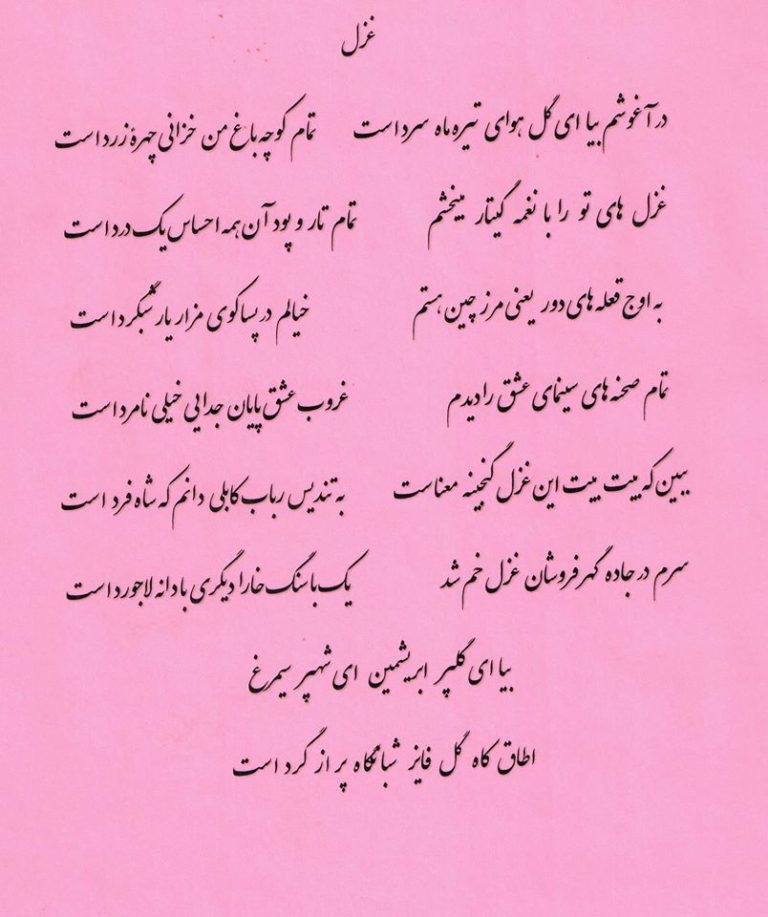 غزل
در آغوشم بیا ای گل هوای تیره ماه سرد است تمام کوچه باغ من خزانی چهرهٔ زرد است
غزل های تو را با نغمه گیتار میبخشم تمام تار و پود آن همه احساس یک درد است
به اوج قعله های دور یعنی مرز چین هستم خیالم در پساکوی مزار یار شبگرد است
تمام صحنه های سینمای عشق را دیدم غروب عشق پایان جدایی خیلی نامرد است
ببین که بیت بیت این غزل گنجینه معناست به تندیس رباب کابلی دانم که شاه فرد است
سرم در جاده گهر فروشان غزل خم شد یک با سنگ خارا دیگری با دانه لاجورد است
بیا ای گلپر ابریشمین ای شهپر سیمرغ
اطاق کاه گل فایز شبانگاه پر از گرد است